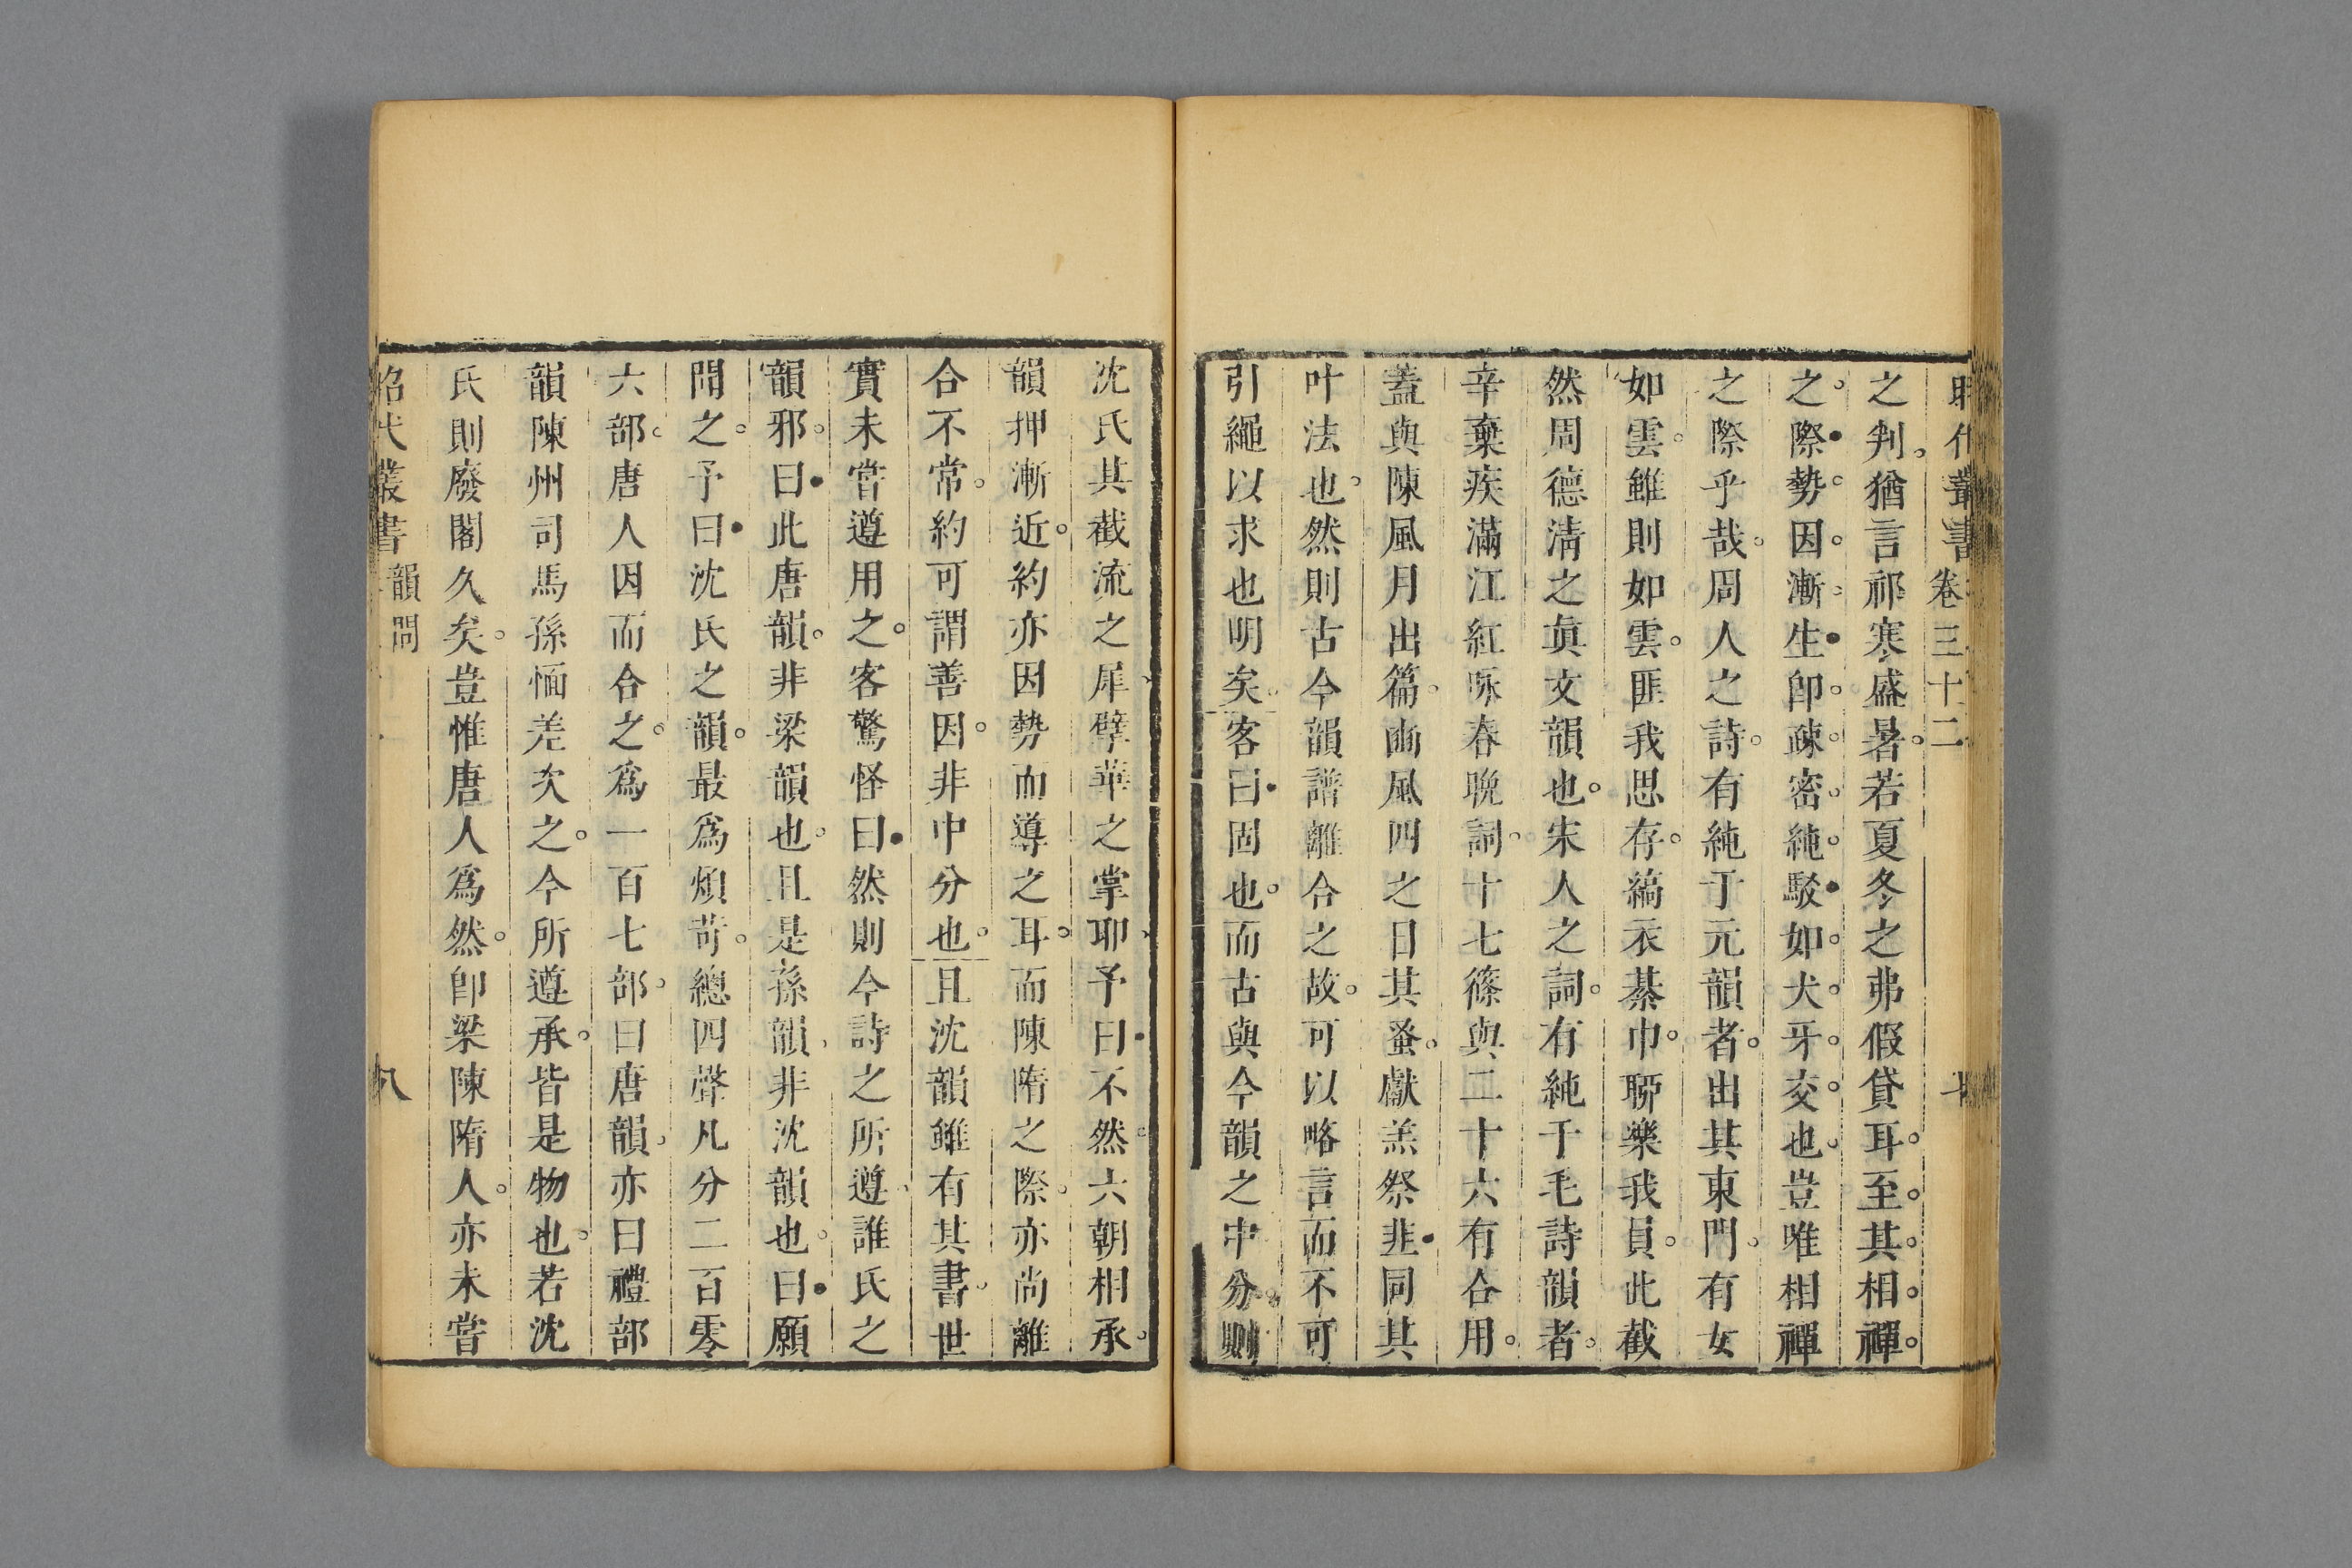 昭代叢書 卷三十二 七
之判猶言祁寒盛暑若夏冬之弗假貸耳至其相禪
之際勢因漸生卽疎密純駁如犬牙交也豈唯相禪
之際乎哉周人之詩有純于元韻者出其東門有女
如雲雖則如雲匪我思存縞衣綦巾聊樂我員此截
然周德淸之眞文韻也宋人之詞有純于毛詩韻者
辛棄疾滿江紅咏春晩詞十七篠與二十六有合用
蓋與陳風月出篇豳風四之日其蚤獻羔祭韭同其
叶法也然則古今韻譜離合之故可以略言而不可
引繩以求也明矣客曰固也而古與今韻之中分則
沈氏其截流之犀擘華之掌耶予曰不然六朝相承
韻押漸近約亦因勢而導之耳而陳隋之際亦尚離
合不常約可謂善因非中分也且沈韻雖有其書世
實未嘗遵用之客驚怪曰然則今詩之所遵誰氏之
韻邪曰此唐韻非梁韻也且是孫韻非沈韻也曰願
聞之予曰沈氏之韻最爲煩苛總四聲凡分二百零
六部唐人因而合之爲一百七部曰唐韻亦曰禮部
韻陳州司馬孫愐差次之今所遵承皆是物也若沈
氏則廢閣久矣豈惟唐人爲然卽梁陳隋人亦未嘗
昭代叢書 韻問 八